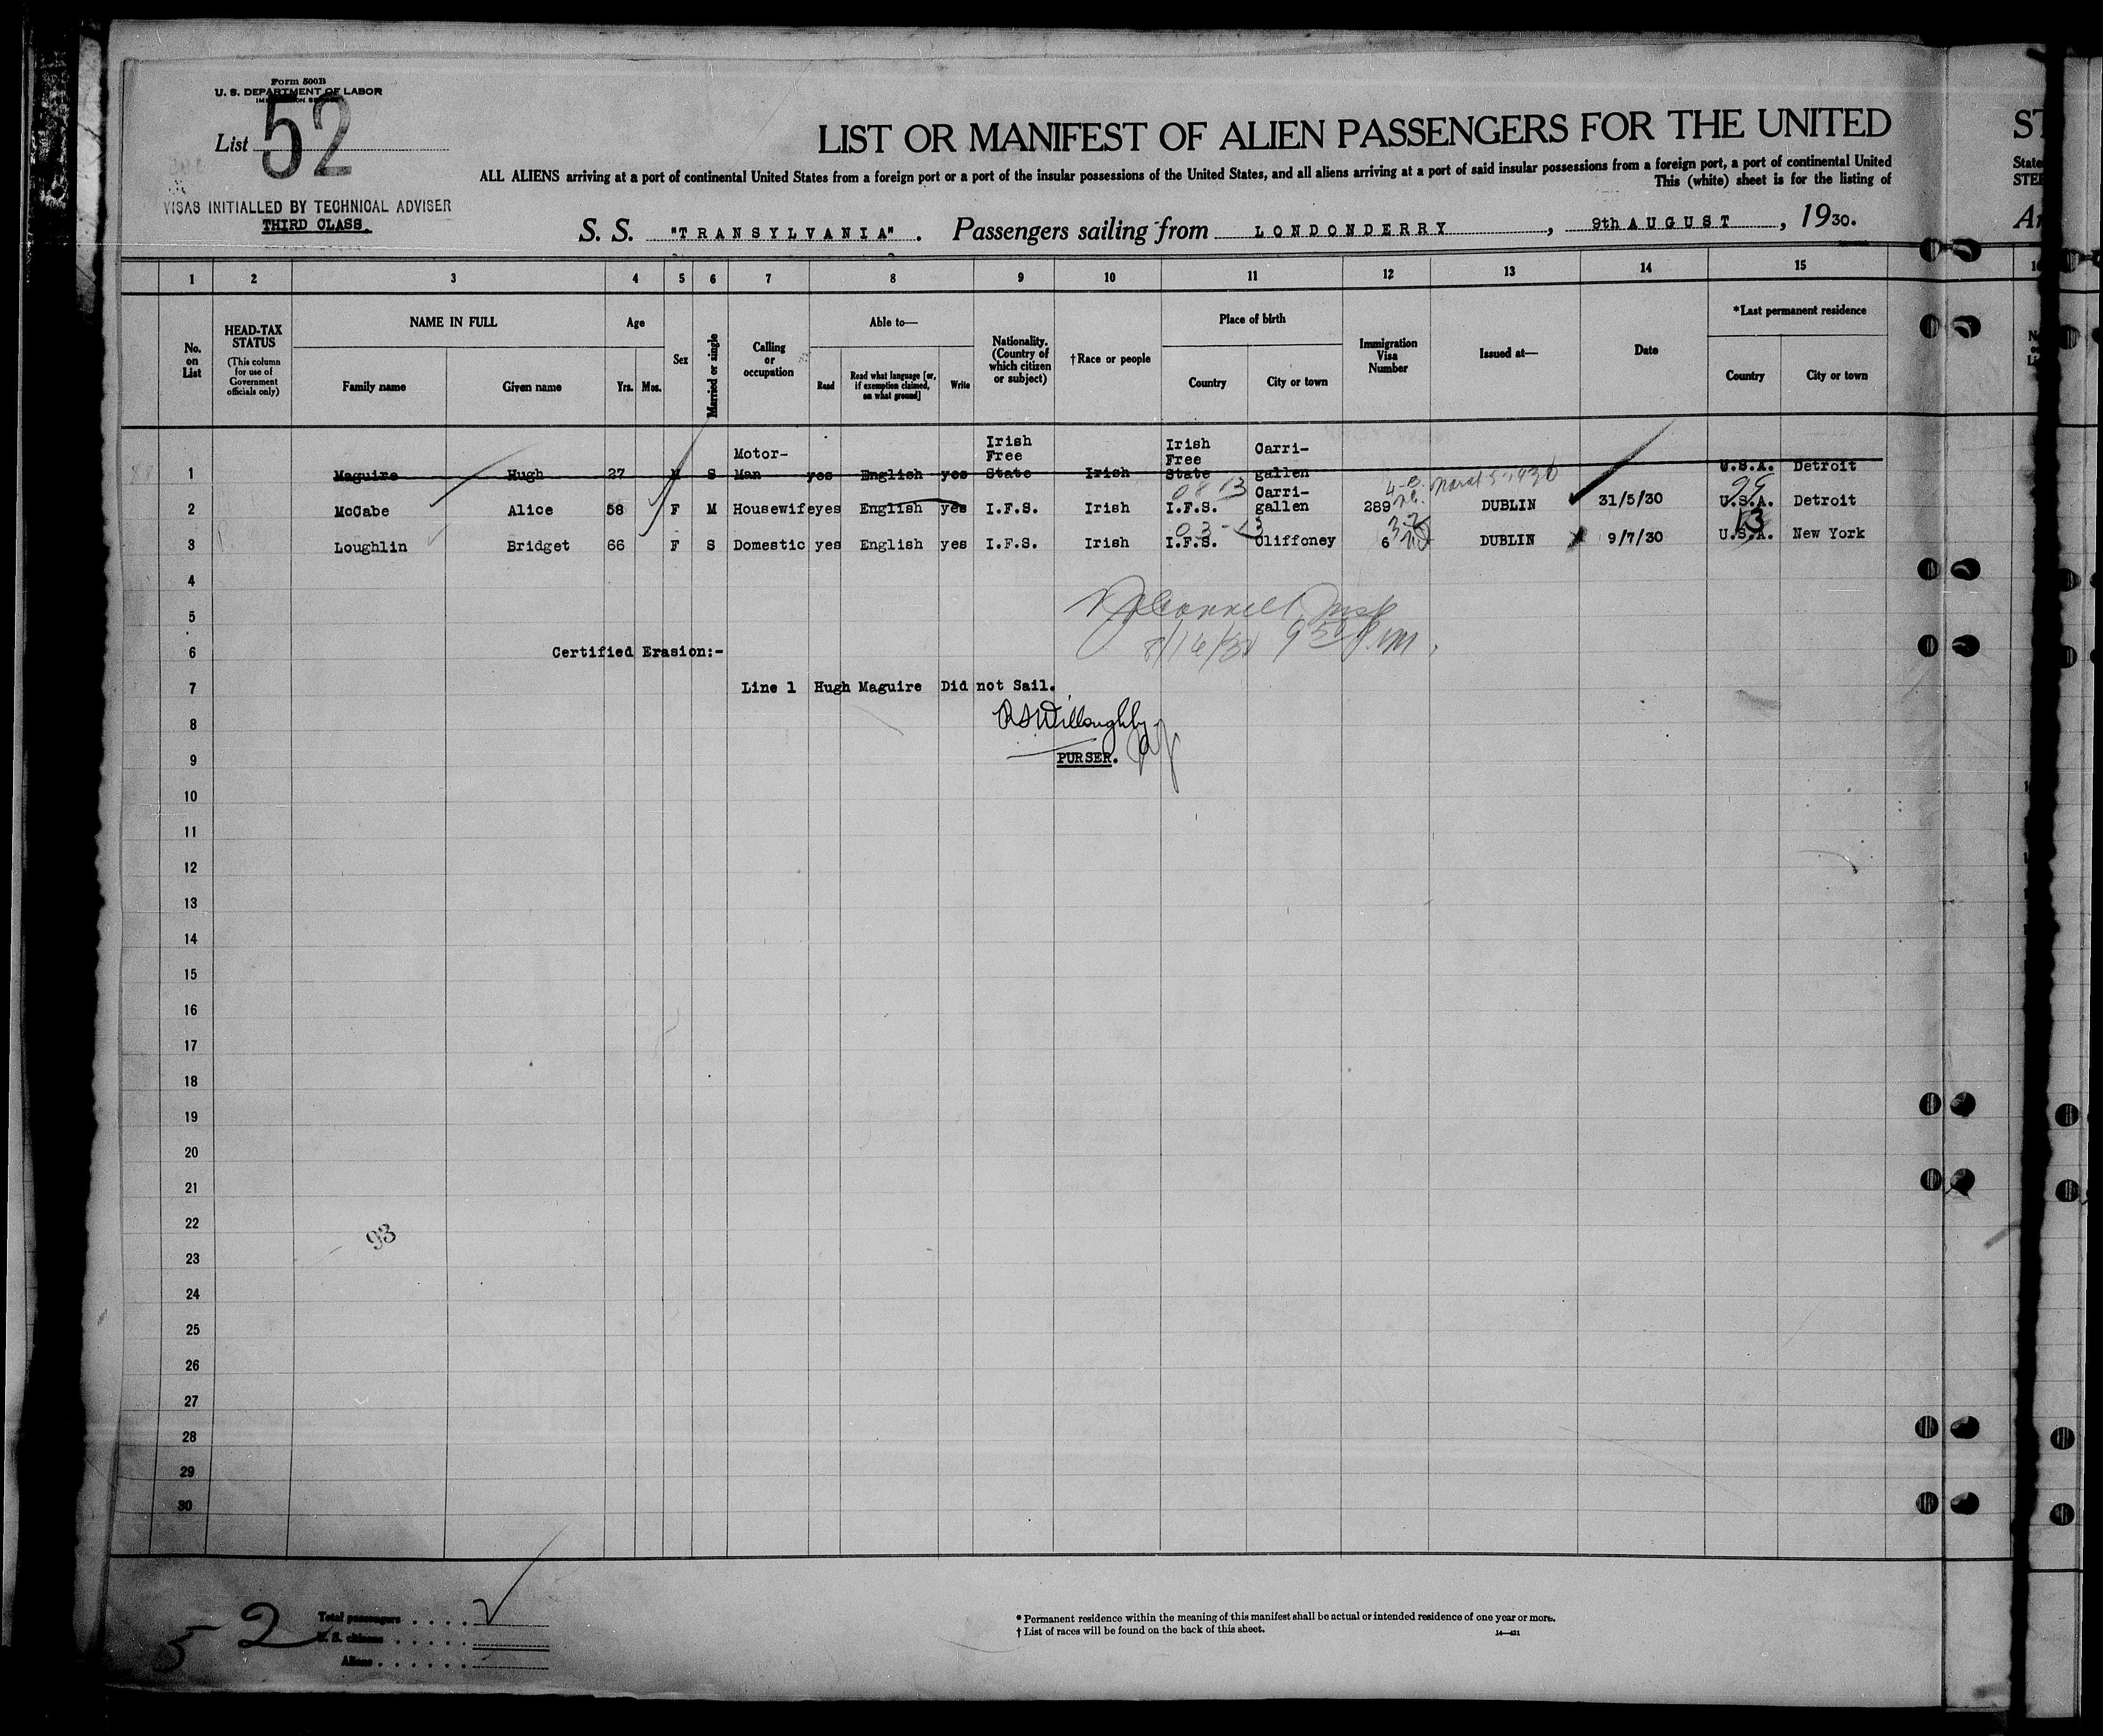 Form 500B
U. S. DEPARTMENT OF LABOR
List 52
VISAS INITIALLED BY TECHNICAL ADVISER
THIRD CLASS.
LIST OR MANIFEST OF ALIEN PASSENGERS FOR THE UNITED
ALL ALIENS arriving at a port of continental United States from a foreign port or a port of the insular possessions of the United States, and all aliens arriving at a port of said insular possessions from a foreign port, a port of continental United
This (white) sheet is for the listing of
S. S. "TRANSYLVANIA". Passengers sailing from LONDONDERRY, 9th AUGUST, 1930.
1 2 3 4 5 6 7 8 9 10 11 12 13 14 15
No. on List
HEAD-TAX STATUS (This column for use of Government officials only)
NAME IN FULL
Family name Given name
Age
Yrs. Mos.
Sex
Married or single
Calling or occupation
Able to—
Read Read what language [or, if exemption claimed, on what ground] Write
Nationality. (Country of which citizen or subject)
†Race or people
Place of birth
Country City or town
Immigration Visa Number
Issued at—
Date
*Last permanent residence
Country City or town
1 Maguire Hugh 27 M S Motor-Man yes English yes Irish Free State Irish Irish Free State Carri-gallen U.S.A. Detroit
2 McCabe Alice 58 F M Housewife yes English yes I.F.S. Irish I.F.S. Carri-gallen 289 DUBLIN 31/5/30 U.S.A. Detroit
3 Loughlin Bridget 66 F S Domestic yes English yes I.F.S. Irish I.F.S. Cliffoney 6 DUBLIN 9/7/30 U.S.A. New York
4
5
6 Certified Erasion:-
7 Line 1 Hugh Maguire Did not Sail.
8 Willoughby
9 PURSER.
10
11
12
13
14
15
16
17
18
19
20
21
22
23
24
25
26
27
28
29
30
93
52
Total passengers
U. S. citizens
Aliens
* Permanent residence within the meaning of this manifest shall be actual or intended residence of one year or more.
† List of races will be found on the back of this sheet.